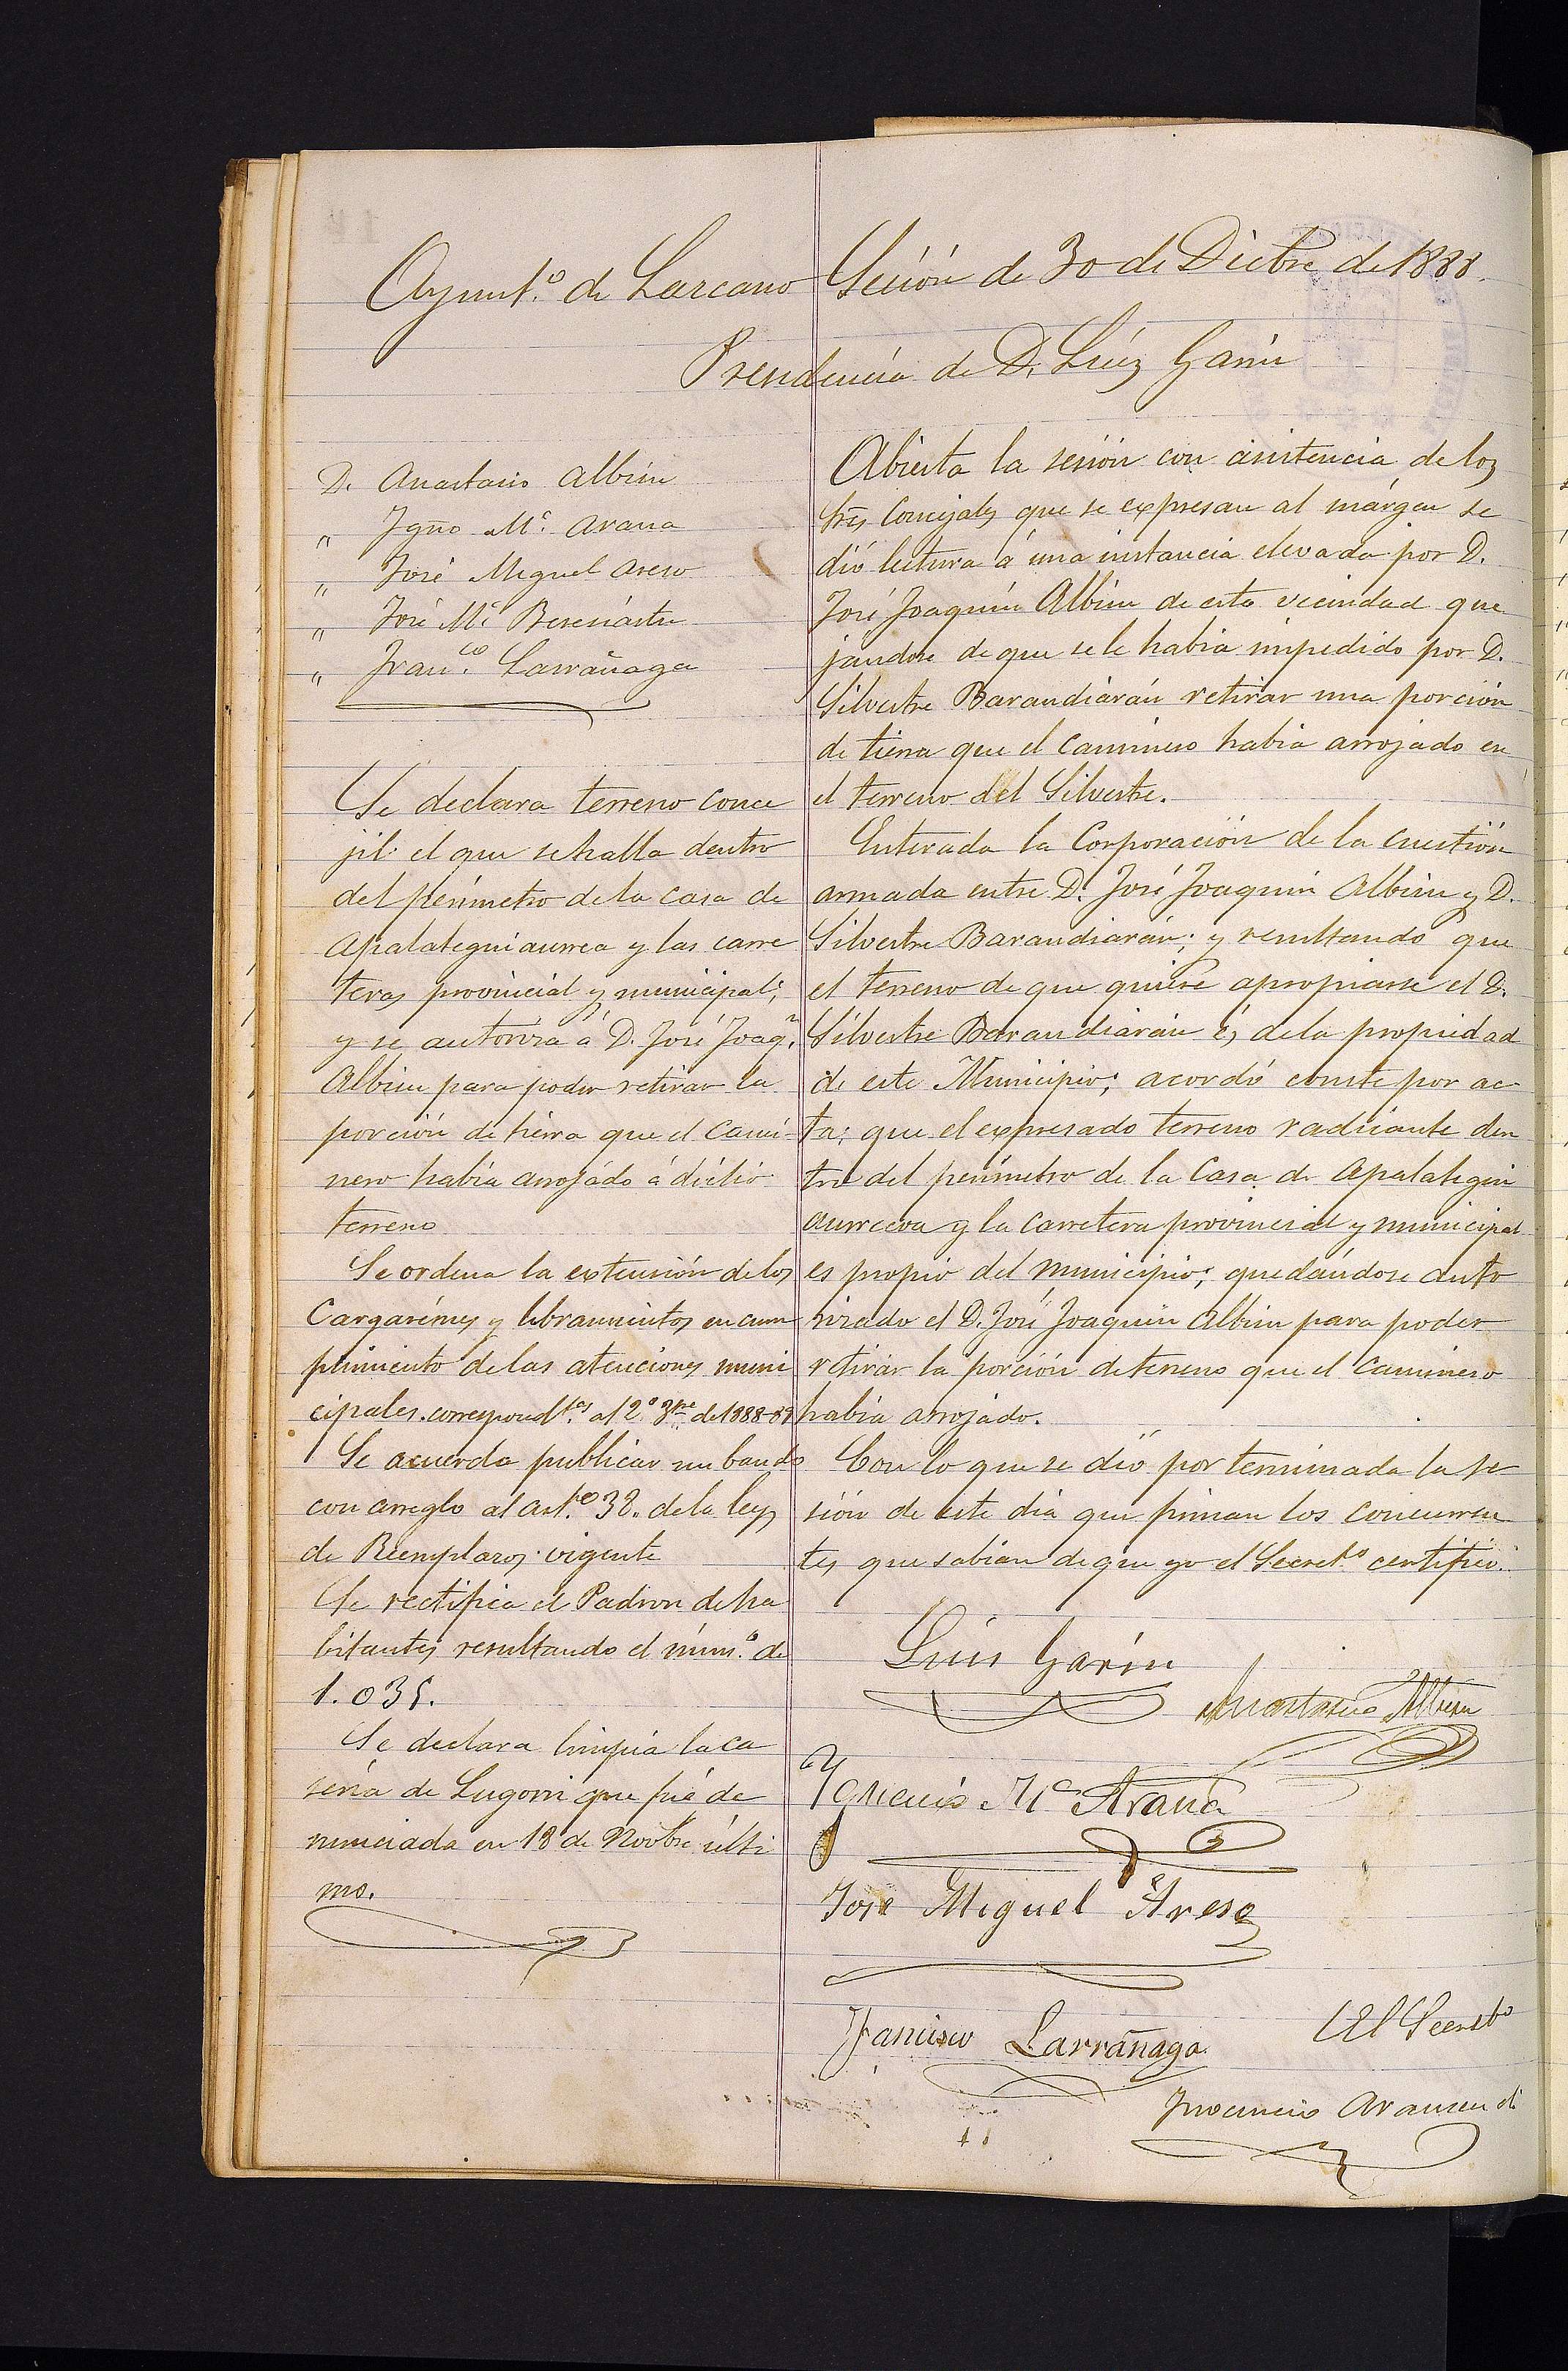 Ayunt.º de Lazcano Sesión de 30 de Dicbre de 1888.
Presidencia de D. Luiz Garin
D. Anastasio Albisu
" Ygno M.ª Arana
" José Miguel Areso
" José M.ª Beresiartu
" Fran.co Larrañaga
Se declara terreno conce
jil el que se halla dentro
del perímetro de la casa de
Apalategui aurrea y las carre
teras provincial y municipal;
y se autoriza á D. José Joaq.n
Albisu para poder retirar la
porción de tierra que el Cami-
nero había arrojado á dicho
terreno
Se ordena la extensión de los
Cargarémes y libramientos en cum
plimiento de las atenciones muni
cipales. correspondt.es al 2º 3tre de 1888-89
Se acuerda publicar un bando
con arreglo al art.º 38. de la ley
de Reemplazos vigente
Se rectifica el Padron de ha
bitantes resultando el núm.º de
1.035.
Se declara limpia la ca
sería de Lugorri que fué de
nunciada en 18 de Novbre últi
mo.
Abierta la sesión con asistencia de los
Srs Concejales que se expresan al márgen se
dió lectura á una instancia elevada por D.
José Joaquín Albisu de esta vecindad que
jandose de que se le habia impedido por D.
Silvestre Barandiárán retirar una porción
de tierra que el Caminero habia arrojado en
el terreno del Silvestre.
Enterada la Corporación de la cuestión
armada entre D. José Joaquín Albisu y D.
Silvestre Barandiarán; y resultando que
el terreno de que quiere apropiarse el D.
Silvestre Barandiarán és de la propiedad
de este Municipio; acordó conste por ac-
ta; que el expresado terreno radicante den
tro del perímetro de la Casa de Apalategui
aurrecoa y la Carretera provincial y municipal
es propio del municipio; quedándose auto
rizado el D. José Joaquin Albisu para poder
retirar la porción de terreno que el Caminero
había arrojado.
Con lo que se dió por terminada la se-
sión de este dia que firman los concurren
tes que sabian de que yo el Secret.º certifico.
Luis Garin
Anastasio Albisu
Ygnacio Mª Arana
José Miguel Areso
Francisco Larrañaga
El Secretº
Inocencio Aramendi